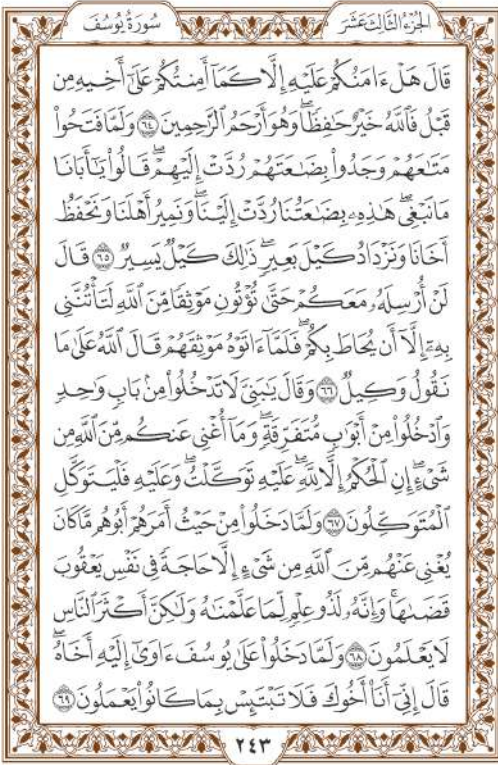 الجزء الثالث عشر
سورة يوسف
قَالَ هَلْ ءَامَنُكُمْ عَلَيْهِ إِلَّا كَمَآ أَمِنتُكُمْ عَلَىٰٓ أَخِيهِ مِن
قَبْلُ فَٱللَّهُ خَيْرٌ حَٰفِظًاۖ وَهُوَ أَرْحَمُ ٱلرَّٰحِمِينَ ٦٤ وَلَمَّا فَتَحُوا۟
مَتَٰعَهُمْ وَجَدُوا۟ بِضَٰعَتَهُمْ رُدَّتْ إِلَيْهِمْۖ قَالُوا۟ يَٰٓأَبَانَا
مَا نَبْغِيۖ هَٰذِهِۦ بِضَٰعَتُنَا رُدَّتْ إِلَيْنَاۖ وَنَمِيرُ أَهْلَنَا وَنَحْفَظُ
أَخَانَا وَنَزْدَادُ كَيْلَ بَعِيرٍۖ ذَٰلِكَ كَيْلٌ يَسِيرٌ ٦٥ قَالَ
لَنْ أُرْسِلَهُۥ مَعَكُمْ حَتَّىٰ تُؤْتُونِ مَوْثِقًا مِّنَ ٱللَّهِ لَتَأْتُنَّنِي
بِهِۦٓ إِلَّآ أَن يُحَاطَ بِكُمْۖ فَلَمَّآ ءَاتَوْهُ مَوْثِقَهُمْ قَالَ ٱللَّهُ عَلَىٰ مَا
نَقُولُ وَكِيلٌ ٦٦ وَقَالَ يَٰبَنِيَّ لَا تَدْخُلُوا۟ مِنۢ بَابٍ وَٰحِدٍ
وَٱدْخُلُوا۟ مِنْ أَبْوَٰبٍ مُّتَفَرِّقَةٍۖ وَمَآ أُغْنِي عَنكُم مِّنَ ٱللَّهِ مِن
شَيْءٍۖ إِنِ ٱلْحُكْمُ إِلَّا لِلَّهِۖ عَلَيْهِ تَوَكَّلْتُۖ وَعَلَيْهِ فَلْيَتَوَكَّلِ
ٱلْمُتَوَكِّلُونَ ٦٧ وَلَمَّا دَخَلُوا۟ مِنْ حَيْثُ أَمَرَهُمْ أَبُوهُم مَّا كَانَ
يُغْنِي عَنْهُم مِّنَ ٱللَّهِ مِن شَيْءٍ إِلَّا حَاجَةً فِي نَفْسِ يَعْقُوبَ
قَضَىٰهَاۚ وَإِنَّهُۥ لَذُو عِلْمٍ لِّمَا عَلَّمْنَٰهُ وَلَٰكِنَّ أَكْثَرَ ٱلنَّاسِ
لَا يَعْلَمُونَ ٦٨ وَلَمَّا دَخَلُوا۟ عَلَىٰ يُوسُفَ ءَاوَىٰٓ إِلَيْهِ أَخَاهُۖ
قَالَ إِنِّيٓ أَنَا۠ أَخُوكَ فَلَا تَبْتَئِسْ بِمَا كَانُوا۟ يَعْمَلُونَ ٦٩
٢٤٣